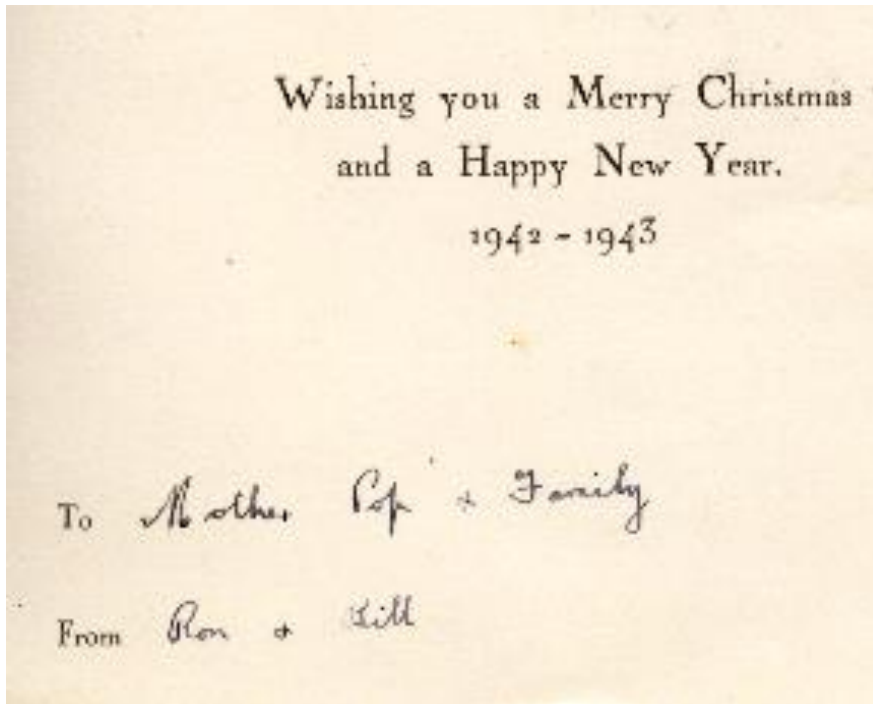 Wishing you a Merry Christmas
and a Happy New Year.
1942 - 1943
To Mother Pop + Family
From Ron +